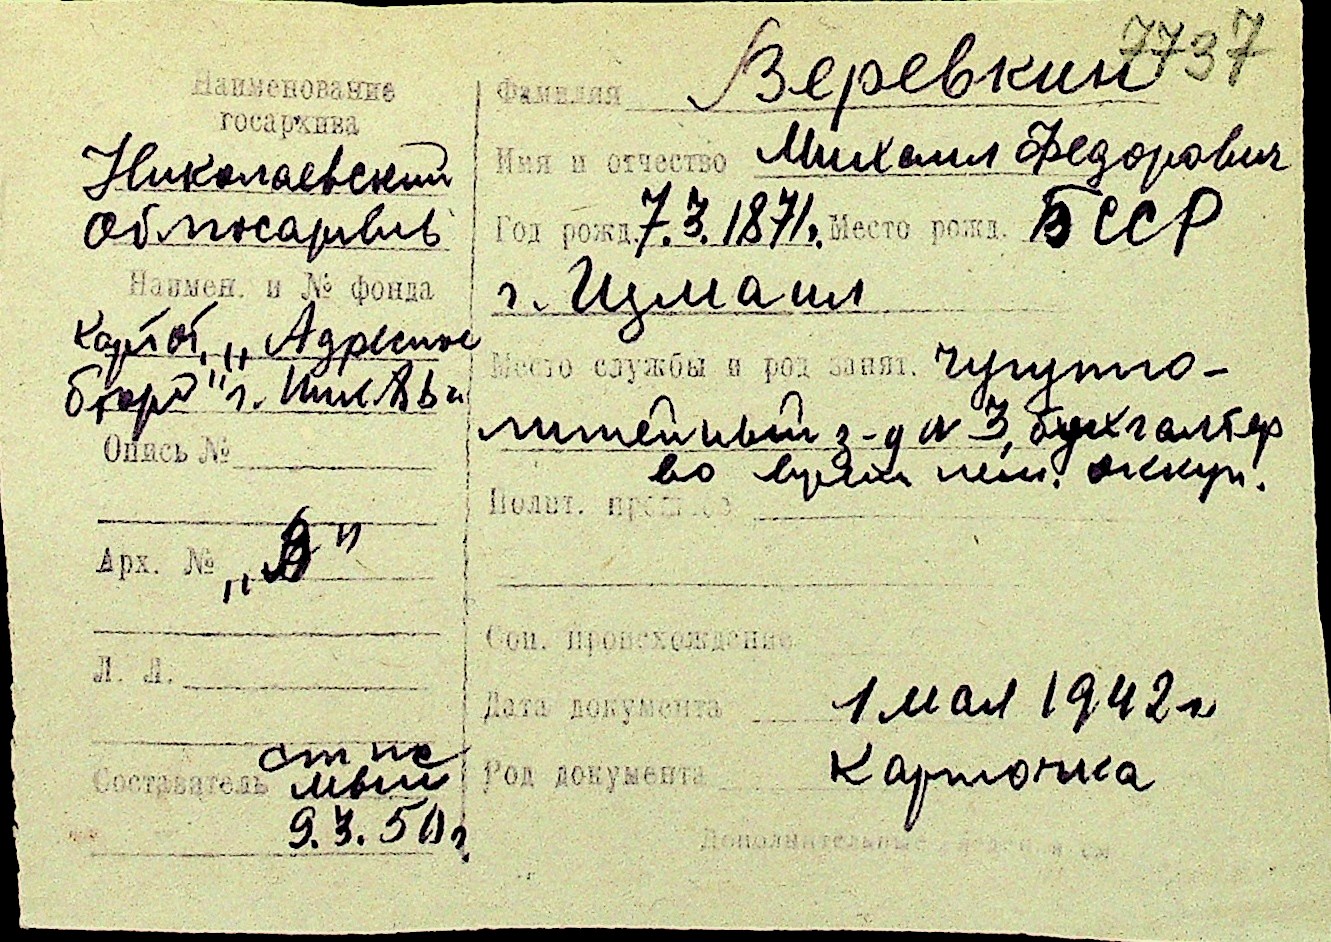 7737
Наименование
госархива
Николаевский
Облгосархив
Наимен. и № фонда
картот. „Адресное
бюро" г. Ник-ва
Опись №
Арх. № „В"
Л. Л.
Составитель
9.3.50г.
Фамилия Веревкин
Имя и отчество Михаил Федорович
Год рожд. 7.3.1871г. Место рожд. БССР
г. Измаил
Место службы и род занят. чугунно-
литейный з-д № 3, бухгалтер
во время нем. оккуп.
Полит. прошлое
Соц. происхождение
Дата документа 1 мая 1942г
Род документа Карточка
Дополнительные сведения см